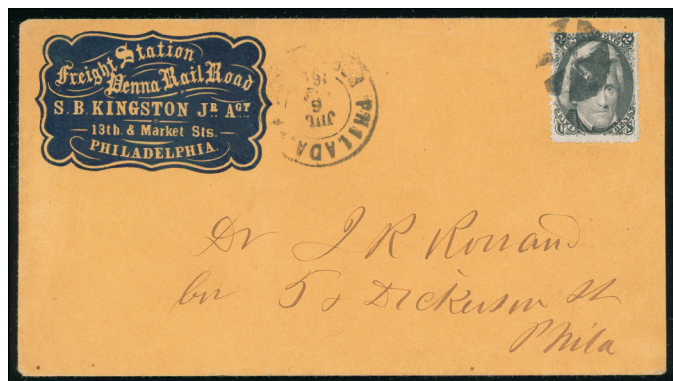 Freight Station
Penna Rail Road
S. B. KINGSTON JR. AGT.
13th. & Market Sts.
PHILADELPHIA.
PHILADA.
JUL
6
2 2
Dr J R
cor 5 & Dickerson St
Phila